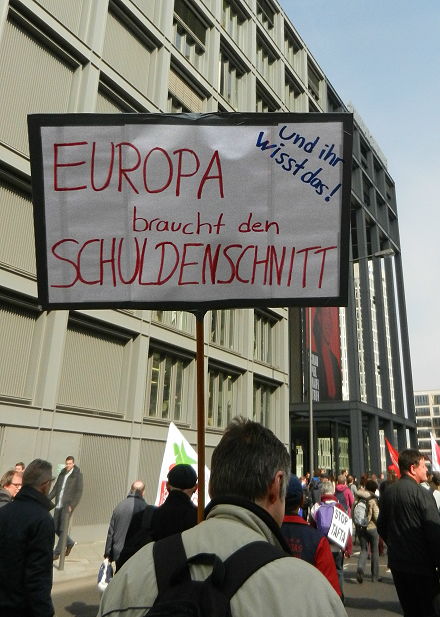 EUROPA
und ihr
wisst das!
braucht den
SCHULDENSCHNITT
STOP
TAFTA